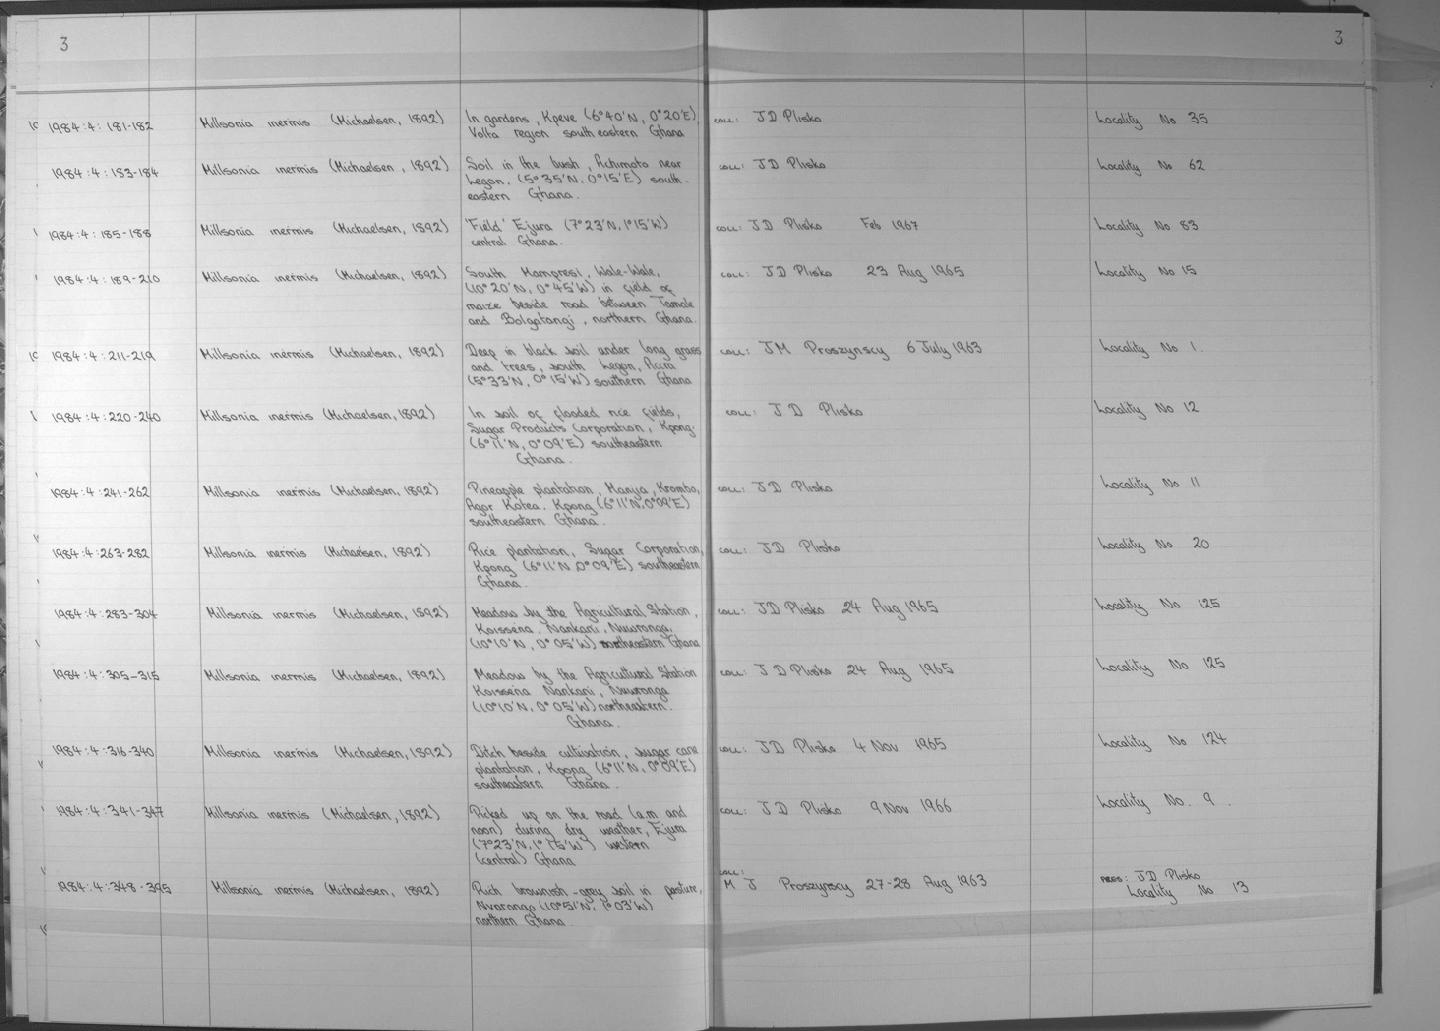 3
3
1984:4:181-182 Millsonia inermis (Michaelsen, 1892) In gardens, Kpeve (6°40'N, 0°20'E) COLL: JD Plisko Locality No 35
Volta region south eastern Ghana
1984:4:183-184 Millsonia inermis (Michaelsen, 1892) Soil in the bush, Achimota near COLL: JD Plisko Locality No 62
Legon, (5°35'N. 0°15'E) south-
eastern Ghana.
1984:4:185-188 Millsonia inermis (Michaelsen, 1892) 'Field' Ejura (7°23'N, 1°15'W) COLL: JD Plisko Feb 1967 Locality No 83
central Ghana.
1984:4:189-210 Millsonia inermis (Michaelsen, 1892) South Mampresi, Wale-Wale, COLL: JD Plisko 23 Aug 1965 Locality No 15
(10°20'N, 0°45'W) in field of
maize beside road between Tamale
and Bolgatangi, northern Ghana.
1984:4:211-219 Millsonia inermis (Michaelsen, 1892) Deep in black soil under long grass COLL: JM Proszynscy 6 July 1963 Locality No 1.
and trees, south Legon, Accra
(5°33'N, 0°15'W) southern Ghana
1984:4:220-240 Millsonia inermis (Michaelsen, 1892) In soil of flooded rice fields, COLL: JD Plisko Locality No 12
Sugar Products Corporation, Kpong.
(6°11'N, 0°09'E) southeastern
Ghana.
1984:4:241-262 Millsonia inermis (Michaelsen, 1892) Pineapple plantation, Manya, Krombo, COLL: JD Plisko Locality No 11
Agor Kotea. Kpong (6°11'N, 0°09'E)
southeastern Ghana.
1984:4:263-282 Millsonia inermis (Michaelsen, 1892) Rice plantation, Sugar Corporation, COLL: JD Plisko Locality No 20
Kpong (6°11'N 0°09'E) southeastern
Ghana.
1984:4:283-304 Millsonia inermis (Michaelsen, 1892) Meadow by the Agricultural Station, COLL: JD Plisko 24 Aug 1965 Locality No 125
Kaissena. Nankani, Nuwronga,
(10°10'N, 0°05'W) northeastern Ghana
1984:4:305-315 Millsonia inermis (Michaelsen, 1892) Meadow by the Agricultural Station COLL: JD Plisko 24 Aug 1965 Locality No 125
Kaissena Nankani, Nuwronga
(10°10'N, 0°05'W) northeastern.
Ghana.
1984:4:316-340 Millsonia inermis (Michaelsen, 1892) Ditch beside cultivation, sugar cane COLL: JD Plisko 4 Nov 1965 Locality No 124
plantation, Kpong (6°11'N, 0°09'E)
southeastern Ghana.
1984:4:341-347 Millsonia inermis (Michaelsen, 1892) Picked up on the road (a.m and COLL: JD Plisko 9 Nov 1966 Locality No. 9.
noon) during dry weather, Ejura
(7°23'N, 1°15'W) western
(central) Ghana
1984:4:348-395 Millsonia inermis (Michaelsen, 1892) Rich brownish-grey soil in pasture, COLL: M J Proszynscy 27-28 Aug 1963 PRES: JD Plisko
Nvarongo (10°51'N, 1°03'W) Locality No 13
northern Ghana